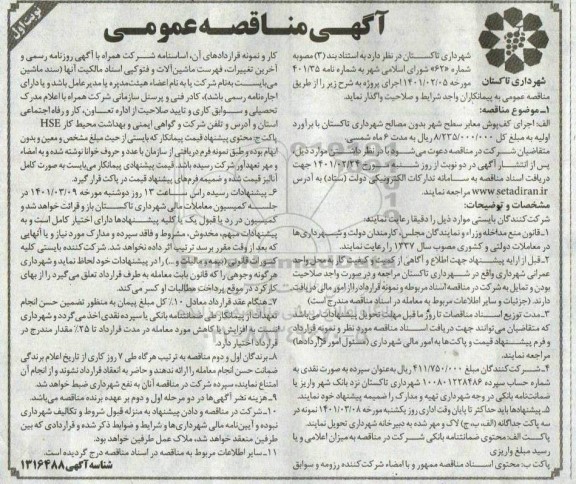 نوبت اول
آگهی مناقصه عمومی
شهرداری تاکستان در نظر دارد به استناد بند (۳) مصوبه
شماره ۶۲۵» شورای اسلامی شهر به شماره نامه ۴۰۱/۳۵
مورخه ۱۴۰۱/۰۲/۰۵ اجرای پروژه به شرح زیر را از طریق
شهرداری تاکستان
مناقصه عمومی به پیمانکاران واجد شرایط و صلاحیت واگذار نماید.
۱-موضوع مناقصه:
الف: اجرای کفپوش معابر سطح شهر بدون مصالح شهرداری تاکستان با برآورد
اولیه به مبلغ کل ۸/۲۳۵/۰۰۰/۰۰۰ ریال به مدت ۶ ماه شمسی
متقاضیان شرکت در مناقصه دعوت می شود با در نظر گرفتن مفاد موارد ذیل،
پس از انتشار آگهی در دو نوبت از روز شنبه مورخه ۱۴۰۱/۰۲/۲۴ جهت
دریافت اسناد مناقصه به سامانه تدارکات الکترونیکی دولت (ستاد) به آدرس
www.setadiran.ir مراجعه نمایند.
مشخصات و توضیحات:
شرکت کنندگان بایستی موارد ذیل را دقیقا رعایت نمایند:
۱-قانون منع مداخله وزراء و نمایندگان مجلس، کارمندان دولت و شهرداری ها
در معاملات دولتی و کشوری مصوب سال ۱۳۳۷ را رعایت نمایند.
۲-قبل از ارایه پیشنهاد جهت اطلاع و آگاهی از کم و کیف انجام کار به آدرس واحد
عمرانی شهرداری واقع در شهرداری تاکستان مراجعه و در صورت واجد صلاحیت
بودن و تمایل به شرکت در مناقصه اسناد مربوطه و نمونه قرارداد را از امور مالی دریافت
دارند. (جزئیات و سایر اطلاعات مربوط به معامله در اسناد مناقصه مندرج است)
۳-مدت توزیع اسناد مناقصات تا روز ماقبل مهلت تحویل پیشنهادات می باشد
که متقاضیان می توانند جهت دریافت اسناد مناقصه مورد نظر و نمونه قرارداد
و فرم پیشنهاد قیمت و پاکت ها به امور مالی شهرداری (مسئول امور قراردادها)
مراجعه نمایند.
۴-شرکت کنندگان مبلغ ۴۱۱/۷۵۰/۰۰۰ ریال به عنوان سپرده به صورت نقدی به
شماره حساب سپرده ۱۰۰۸۰۱۲۲۸۴۸۶ شهرداری تاکستان نزد بانک شهر واریز یا
ضمانتنامه بانکی در وجه شهرداری تهیه و مدارک را ضمیمه پیشنهاد خود نمایند.
۵-پیشنهادها باید حداکثر تا پایان وقت اداری روز یکشنبه مورخه ۱۴۰۱/۰۳/۰۸ نمونه در
سه پاکت جداگانه (الف-ب-ج) لاک و مهر شده به دبیرخانه شهرداری تحویل نمایند.
پاکت الف: محتوی ضمانتنامه بانکی شرکت در مناقصه به میزان اعلامی و یا
رسید مبلغ واریزی
پاکت ب: محتوی اسناد مناقصه ممهور و با امضاء شرکت کننده رزومه و سوابق
کار و نمونه قراردادهای آن، اساسنامه شرکت همراه با آگهی روزنامه رسمی و
آخرین تغییرات، فهرست ماشین آلات و فتوکپی اسناد مالکیت آنها (سند ماشین
می بایست به نام شرکت یا به نام اعضاء هیئت مدیره یا مدیرعامل باشد و یا دارای
اجاره نامه رسمی باشد)، کادر فنی و پرسنل سازمانی شرکت همراه با اعلام مدرک
تحصیلی و سوابق کاری و تایید صلاحیت از اداره تعاون، کار و رفاه اجتماعی
استان و آدرس و تلفن شرکت و گواهی ایمنی و بهداشت محیط کار HSE
پاکت ج: محتوی پیشنهاد قیمت پیمانکار که بایستی از حیث مبلغ مشخص و معین و بدون
ابهام بوده و طبق نمونه فرم دریافتی از سازمان با عدد و حروف خوانا نوشته شده و به امضاء
و مهر تعهدآور شرکت رسیده باشد. قیمت پیشنهادی پیمانکار می بایست به صورت کامل
آنالیز قیمت شده و ضمیمه فرم های پیشنهاد قیمت در پاکت قرار گیرد.
۶- پیشنهادات رسیده راس ساعت ۱۳ روز دوشنبه مورخه ۱۴۰۱/۰۳/۰۹ در
جلسه کمیسیون معاملات مالی شهرداری تاکستان باز و قرائت خواهد شد و
کمیسیون در رد یا قبول یک یا کلیه پیشنهادها دارای اختیار کامل است و به
پیشنهادات مبهم، مخدوش، مشروط و فاقد سپرده و مدارک مورد نیاز و یا آنهایی
که بعد از وقت مقرر برسد ترتیب اثر داده نخواهد شد. شرکت کننده بایستی کلیه
کسورات قانونی (بیمه، مالیات و...) را در پیشنهادات خود لحاظ نماید و شهرداری
هرگونه وجوهی را که قانون بابت معامله به طرف قرارداد تعلق می گیرد را از بهای
کارکرد در موقع پرداخت مطالبات او کسر می کند.
۷-هنگام عقد قرارداد معادل ۱۰٪ کل مبلغ پیمان به منظور تضمین حسن انجام
تعهدات از پیمانکار طی ضمانتنامه بانکی یا سپرده نقدی اخذ می گردد و شهرداری
نسبت به افزایش یا کاهش مورد معامله در مدت قرارداد تا ۲۵٪ مقدار مندرج در
قرارداد اختیار دارد.
۸-برندگان اول و دوم مناقصه به ترتیب هرگاه طی ۷ روز کاری از تاریخ اعلام برندگی
ضمانت حسن انجام معامله را ارائه ندهند و حاضر به انعقاد قرارداد نشوند و از انجام آن
امتناع نمایند، سپرده شرکت در مناقصه آنان به نفع شهرداری ضبط خواهد شد.
۹-هزینه نشر آگهی ها در دو مرحله اول و دوم بر عهده برنده مناقصه می باشد.
۱۰-شرکت در مناقصه و دادن پیشنهاد به منزله قبول شروط و تکالیف شهرداری
نبوده و آیین نامه مالی شهرداری ها و شرایط و ضوابط ذکر شده و قراردادی که بین
طرفین منعقد خواهد شد، ملاک عمل طرفین خواهد بود.
۱۱-سایر اطلاعات مربوط به مناقصه در اسناد مناقصه درج گردیده است.
شناسه آگهی ۱۳۱۶۴۸۸